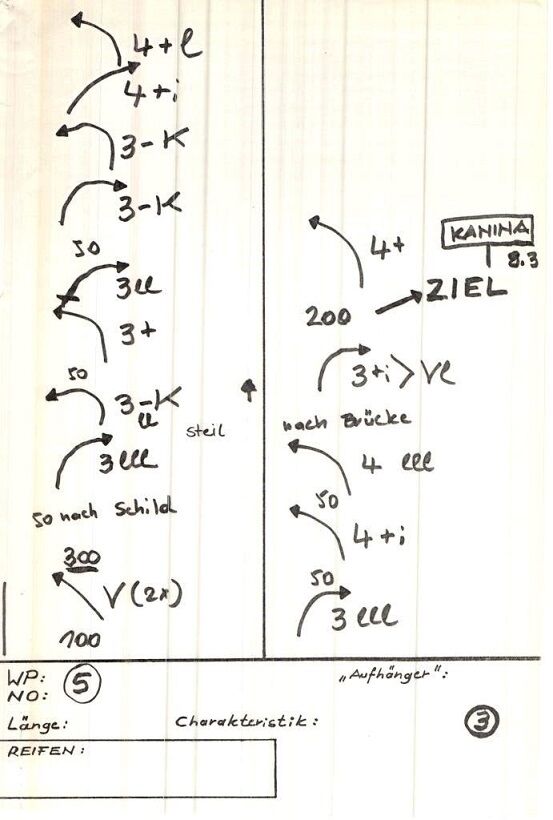 4+l
4+i
3-K
3-K
50
3ll
3+
50
3-K
ll
steil
3lll
50 nach Schild
300
V(2x)
100
KANINA
4+
8.3
ZIEL
200
3+i>Vl
nach Brücke
4 lll
50
4+i
50
3 lll
WP:
NO: 5
Länge:
Charakteristik:
REIFEN:
„Aufhänger":
3